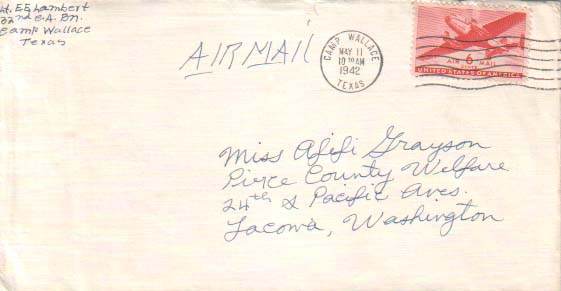 Lt. E E Lambert
32nd C.A. Bn.
Camp Wallace
Texas
AIR MAIL
CAMP WALLACE
MAY 11
10 30 AM
1942
TEXAS
AIR 6 MAIL
CENTS
UNITED STATES OF AMERICA
Miss Afifi Grayson
Pierce County Welfare
24th & Pacific Aves.
Tacoma, Washington